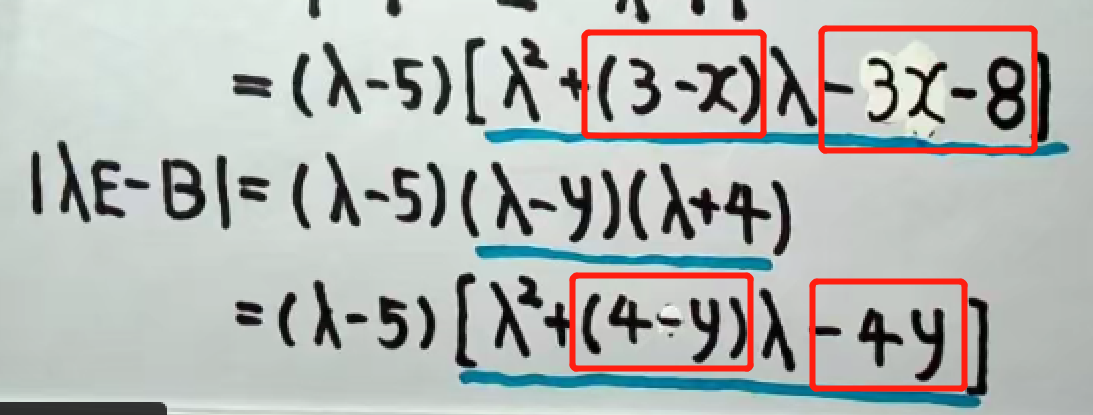 = (λ-5)[λ²+(3-x)λ-3x-8]
|λE-B|= (λ-5)(λ-y)(λ+4)
= (λ-5)[λ²+(4-y)λ-4y]